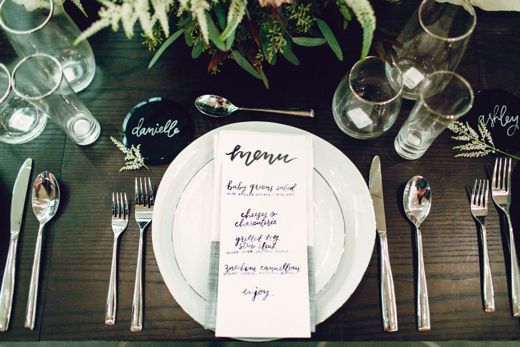 danielle
ashley
menu
baby greens salad
cheese &
charcuterie
grilled N.Y.
strip steak
zucchini cannelloni
enjoy.